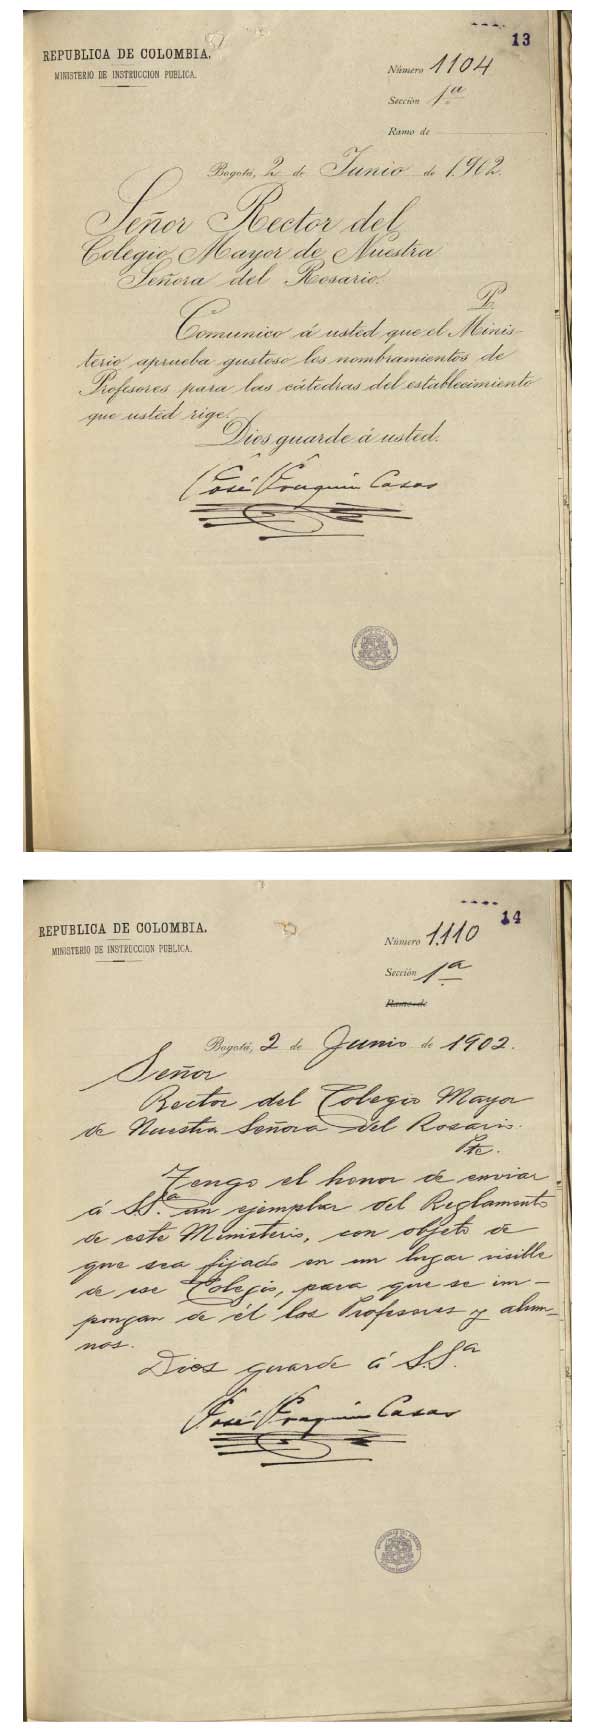 13
REPUBLICA DE COLOMBIA.
MINISTERIO DE INSTRUCCION PUBLICA.
Número 1104
Sección 1ª
Ramo de
Bogotá, 2 de Junio de 1902.
Señor Rector del
Colegio Mayor de Nuestra
Señora del Rosario.
P.
Comunico á usted que el Minis-
terio aprueba gustoso los nombramientos de
Profesores para las cátedras del establecimiento
que usted rige.
Dios guarde á usted.
José Joaquín Casas
14
REPUBLICA DE COLOMBIA.
MINISTERIO DE INSTRUCCION PUBLICA.
Número 1.110
Sección 1ª
Ramo de
Bogotá, 2 de Junio de 1902.
Señor
Rector del Colegio Mayor
de Nuestra Señora del Rosario.
Pte.
Tengo el honor de enviar
á S.Sª un ejemplar del Reglamento
de este Ministerio, con objeto de
que sea fijado en un lugar visible
de ese Colegio, para que se im-
pongan de él los Profesores y alum-
nos.
Dios guarde á S.Sª
José Joaquín Casas